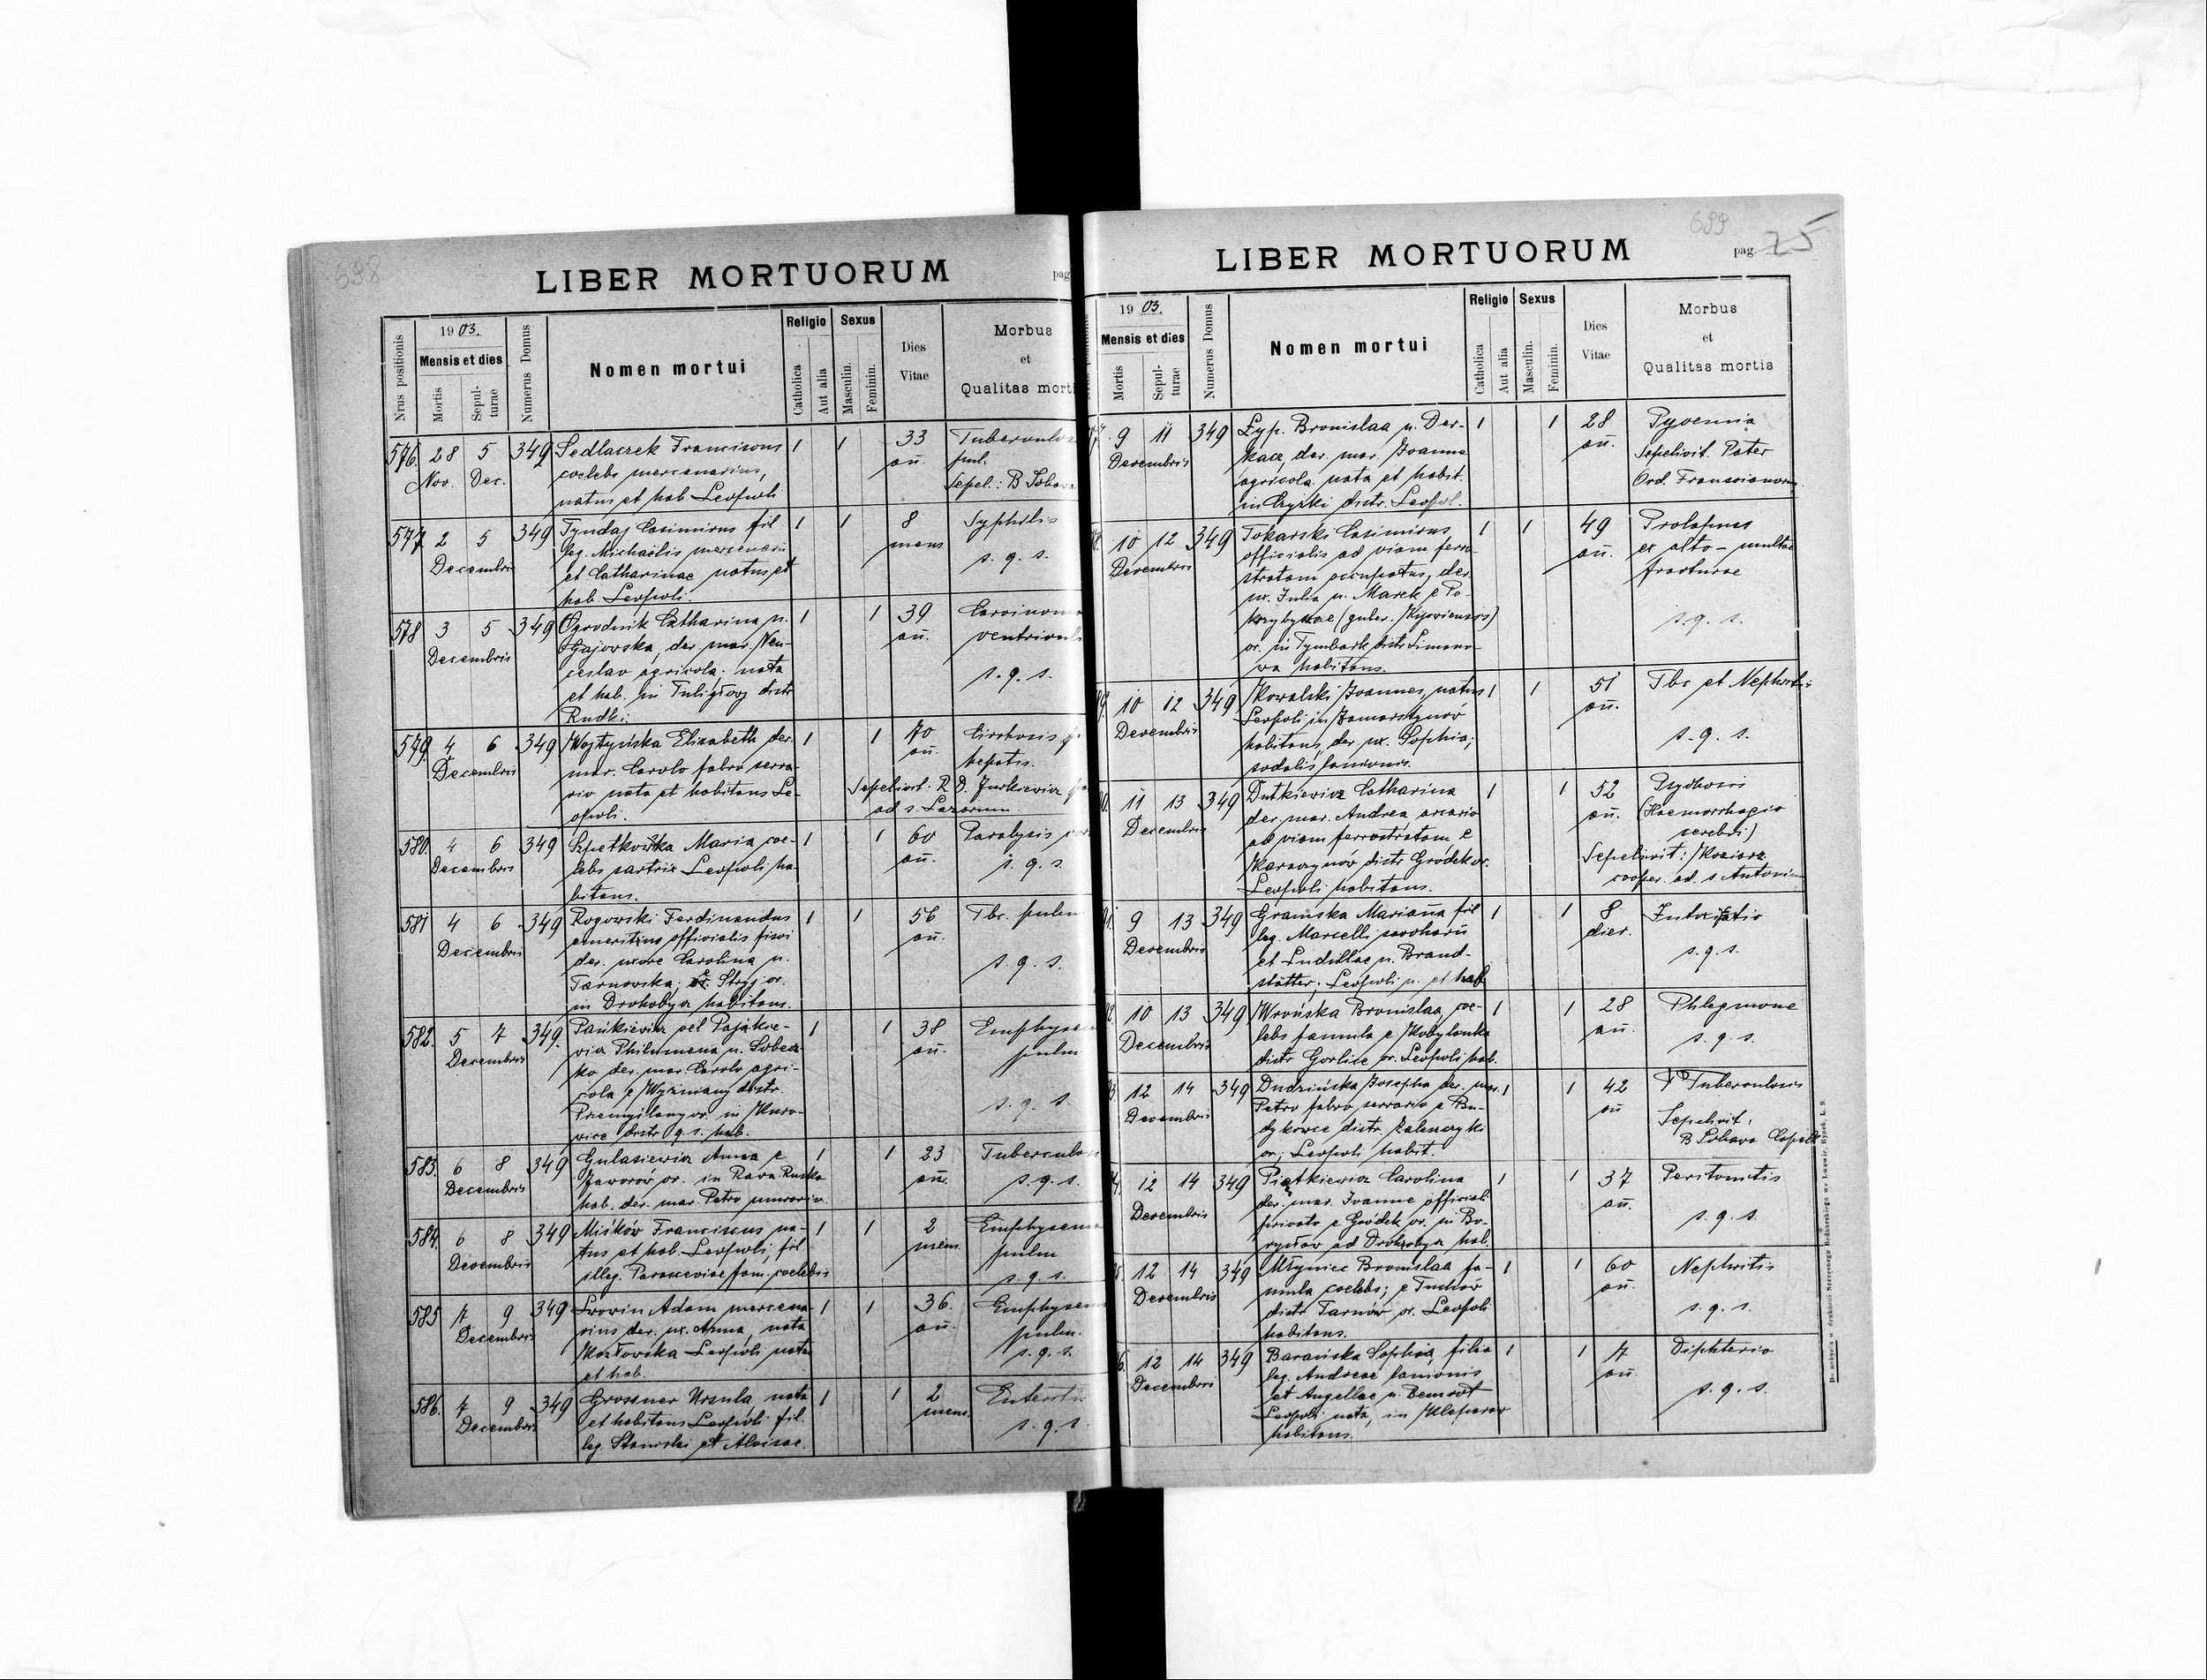 698
LIBER MORTUORUM
pag
Nrus positionis
1903.
Mensis et dies
Mortis
Sepulturae
Numerus Domus
Nomen mortui
Religio
Catholica
Aut alia
Sexus
Masculin.
Feminin.
Dies
Vitae
Morbus
et
Qualitas morti
576. 28 5 349 Sedlaczek Franciscus 1 1 33 Tuberculos
Nov. Dec. coelebs mercenarius, an. pul.
natus et hab. Leopoli Sepel.: B Sobov
577 2 5 349 Tyndaj Casimirus fil 1 1 8 Syphilis
Decembris leg. Michaëlis mercenarii mens
et Catharinae natus et s. q. s.
hab. Leopoli.
578 3 5 349 Ogrodnik Catharina n. 1 1 39 Carcinoma
Decembris Gajowska, der. mar. Ven- an. ventriculi
ceslao agricola; nata
et hab. in Tuligłowy distr s. q. s.
Rudki.
579. 4 6 349 Wojtyńska Elisabeth der. 1 1 70 Cirrhosis
Decembris mar. Carolo fabro serra- an. hepatis.
rio nata et habitans Le- Sepelivit: R. D. Jurkiewicz
opoli. ad s. Lazarum
580. 4 6 349 Szpetkowska Maria coe- 1 1 60 Paralysis cor
Decembris lebs sartrix Leopoli ha- an. s. q. s.
bitans.
581 4 6 349 Rogowski Ferdinandus 1 1 56 Tbc. pulm
Decembris emeritus officialis fisci an.
der. uxore Carolina n.
Tarnowska; Stryj or. s. q. s.
in Drohobycz habitans.
582. 5 7 349. Pańkiewicz vel Pająkie- 1 1 38 Emphysem
Decembris vicz Philomena n. Sobcz- an. pulm
ko der. mar. Carolo agri-
cola e Wyżniany distr
Przemyślany or. in Kuro- s. q. s.
vice distr q. s. hab.
583. 6 8 349 Gulasiewicz Anna e 1 1 23 Tuberculos
Decembris Jaworów or. in Rava Ruska an. s. q. s.
hab. der. mar. Petro murario
584. 6 8 349 Miśków Franciscus na- 1 1 2 Emphysema
Decembris tus et hab. Leopoli, fil mens pulm
illeg. Parasceviae fam. coelebis s. q. s.
585 7 9 349 Srovin Adam mercena- 1 1 36. Emphysem
Decembris rius der. ux. Anna, nata an. pulm.
Kozłowska Leopoli natus s. q. s.
et hab.
586. 7 9 349 Grossner Ursula, nata 1 1 2 Enteritis
Decembris et habitans Leopoli fil. mens.
leg. Stanislai et Aloisae. s. q. s.
699
LIBER MORTUORUM
pag. 25
1903.
Mensis et dies
Mortis
Sepulturae
Numerus Domus
Nomen mortui
Religio
Catholica
Aut alia
Sexus
Masculin.
Feminin.
Dies
Vitae
Morbus
et
Qualitas mortis
9 11 349 Łyp. Bronislaa n. Der- 1 1 28 Pyoemia
Decembris kacz, der. mar. Joanne an. Sepelivit. Pater
agricola nata et habit. Ord. Franciscanorum
in Czyżki distr. Leopol.
10 12 349 Tokarski Casimirus 1 1 49 Prolapsus
Decembris officialis ad viam ferro- an. ex alto - multae
stratam occupatus, der. fracturae
ux. Julia n. Marek e Po-
krzybytnae (guber. Kijoviensis) s. q. s.
or. in Tymbark distr Limano-
wa habitans.
10 12 349 Kowalski Joannes, natus 1 1 51 Tbc et Nephritis
Decembris Leopoli in Zamarstynów an.
habitans, der. ux. Sophia; s. q. s.
sodalis lanionis.
11 13 349 Dutkiewicz Catharina 1 1 52 Psychosis
Decembris der. mar. Andrea, arcario an. (Haemorrhagia
ad viam ferrostratam, e cerebri)
Karaczynów distr Gródek or. Sepelivit: Koziorz
Leopoli habitans. cooper. ad. s. Antonium
9 13 349 Gramska Marianna fil 1 1 8 Intoxicatio
Decembris leg. Marcelli parochorii dier.
et Ludillae n. Brand- s. q. s.
stätter; Leopoli n. et hab
10 13 349 Wrońska Bronislaa, coe- 1 1 28 Phlegmone
Decembris lebs famula e Kobylanka an.
distr Gorlice or. Leopoli hab. s. q. s.
12 14 349 Dudzińska Josepha der. mar. 1 1 42 Tuberculosis
Decembris Petro fabro serrario e Bu- an
dykowce distr. Zaleszczyki Sepelivit:
or; Leopoli habit. B Sobava Capell
12 14 349 Piątkiewicz Carolina 1 1 37 Peritonitis
Decembris der. mar. Joanne official. an.
privato e Gródek or. in Bo- s. q. s.
rysław ad Drohobycz hab.
12 14 349 Młyniec Bronislaa fa- 1 1 60 Nephritis
Decembris mula coelebs; e Tuchów an.
distr Tarnów or. Leopoli s. q. s.
habitans.
12 14 349 Barańska Sophia, filia 1 1 7 Diphteria
Decembris leg. Andreae lanionis an.
et Angellae n. Bemrot s. q. s.
Leopoli nata, in Kleparow
habitans.
Do nabycia w drukarni Szczęsnego Bednarskiego we Lwowie, Rynek, L. 9.